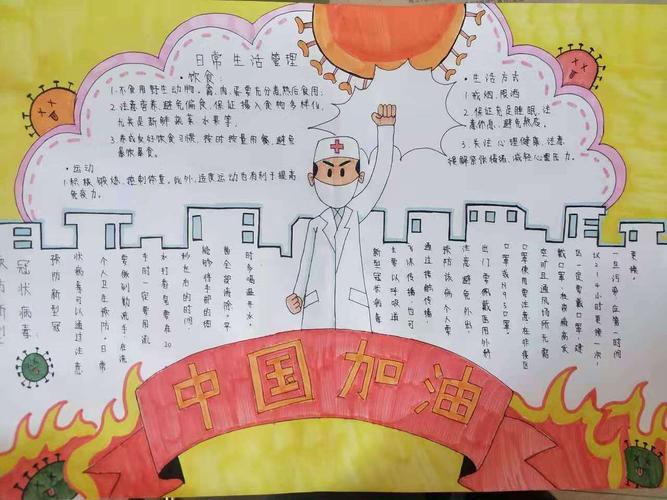 日常生活管理
·饮食:
1.不食用野生动物。禽、肉、蛋要充分煮熟后食用;
2.注意营养,避免偏食,保证摄入食物多样化,
尤其是新鲜蔬菜水果等。
3.养成良好饮食习惯,按时按量用餐,避免
暴饮暴食。
·运动
1.积极锻炼、控制体重。此外,适度运动也有利于提高
免疫力。
·生活方式
1.戒烟、限酒
2.保证充足睡眠,注
意休息,避免熬夜。
3.关注心理健康,注意
缓解紧张情绪,减轻心理压力。
防新型
冠状病毒
预防新型冠
状病毒可以通过注意
个人卫生预防。日常
要做到勤洗手在流
手时一定要用流
水打香皂要在20
秒左右的时间,
能够将手部的细
菌全部清除。平
时多喝温开水。
新型冠状病毒
主要以呼吸道
飞沫传播也可
通过接触传播
预防该病个人要
注意,避免外出,
出门要佩戴医用外科
口罩或N95口罩。
口罩使用要注意在非疫区
空旷且通风场所无需
戴口罩,在疫病高发
区一定要戴口罩,建
议2到4小时更换一次,
一旦污染应第一时间
更换。
中国加油